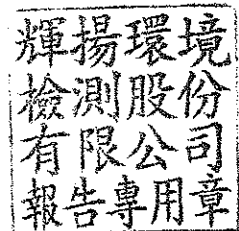 輝揚環境
檢測股份
有限公司
報告專用章